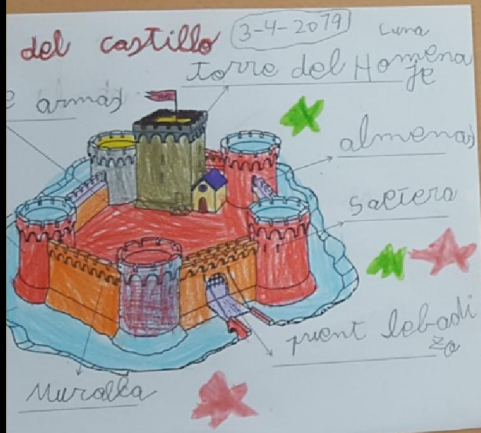 del castillo
3-4-2019
Luna
torre del Homena
je
e armas
almenas
saetera
puent lebadi
zo
Muralla